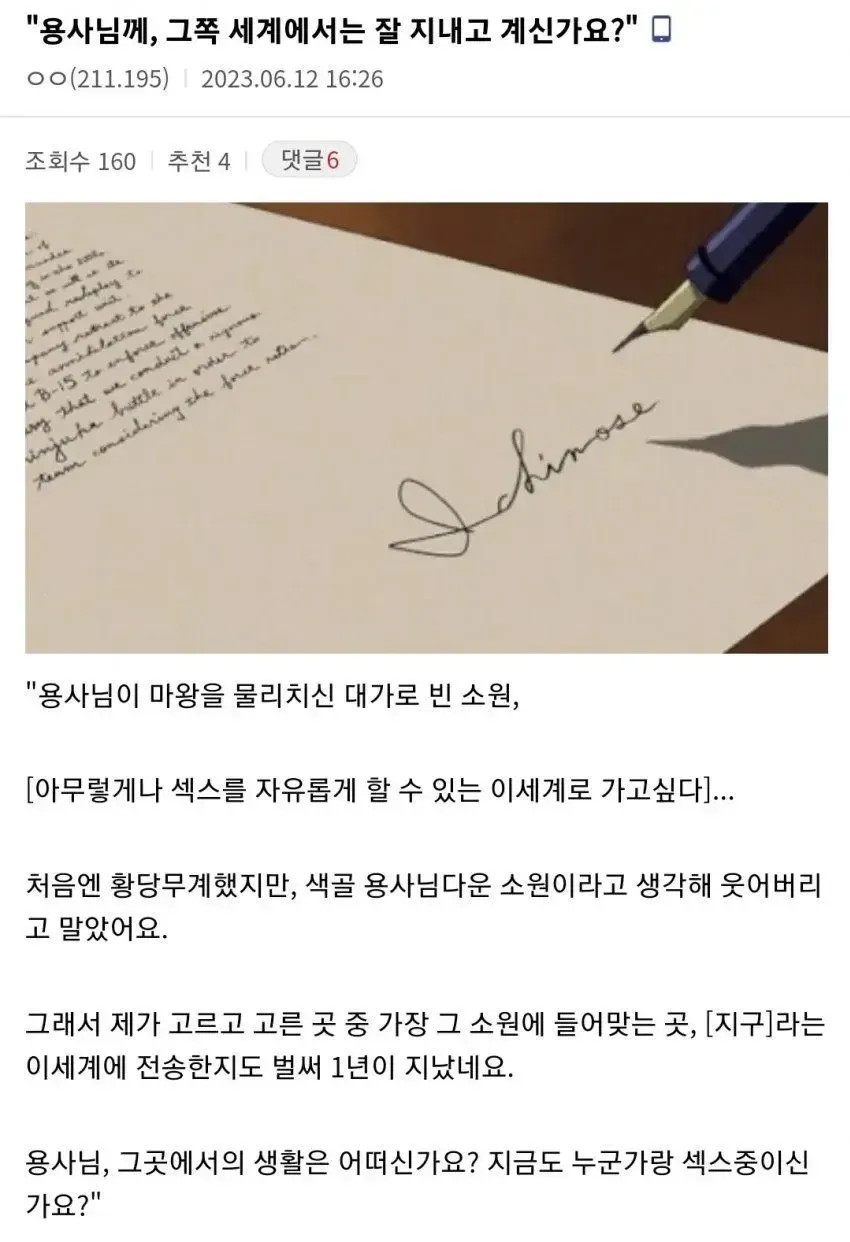 "용사님께, 그쪽 세계에서는 잘 지내고 계신가요?"
ㅇㅇ(211.195) | 2023.06.12 16:26
조회수 160 | 추천 4 | 댓글6
to the
annihilation force
B-15 to enforce offensive
that we conduct a rigorous
battle in order to
team considering the force ratio.
Ichinose
"용사님이 마왕을 물리치신 대가로 빈 소원,
[아무렇게나 섹스를 자유롭게 할 수 있는 이세계로 가고싶다]...
처음엔 황당무계했지만, 색골 용사님다운 소원이라고 생각해 웃어버리
고 말았어요.
그래서 제가 고르고 고른 곳 중 가장 그 소원에 들어맞는 곳, [지구]라는
이세계에 전송한지도 벌써 1년이 지났네요.
용사님, 그곳에서의 생활은 어떠신가요? 지금도 누군가랑 섹스중이신
가요?"